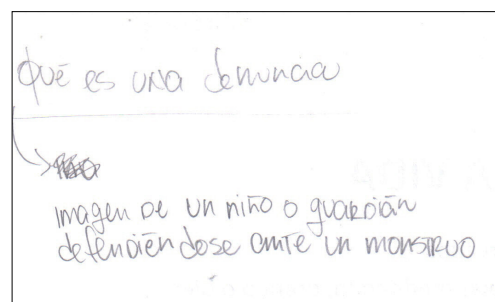 Qué es una denuncia
imagen de un niño o guardián
defendiéndose ante un monstruo